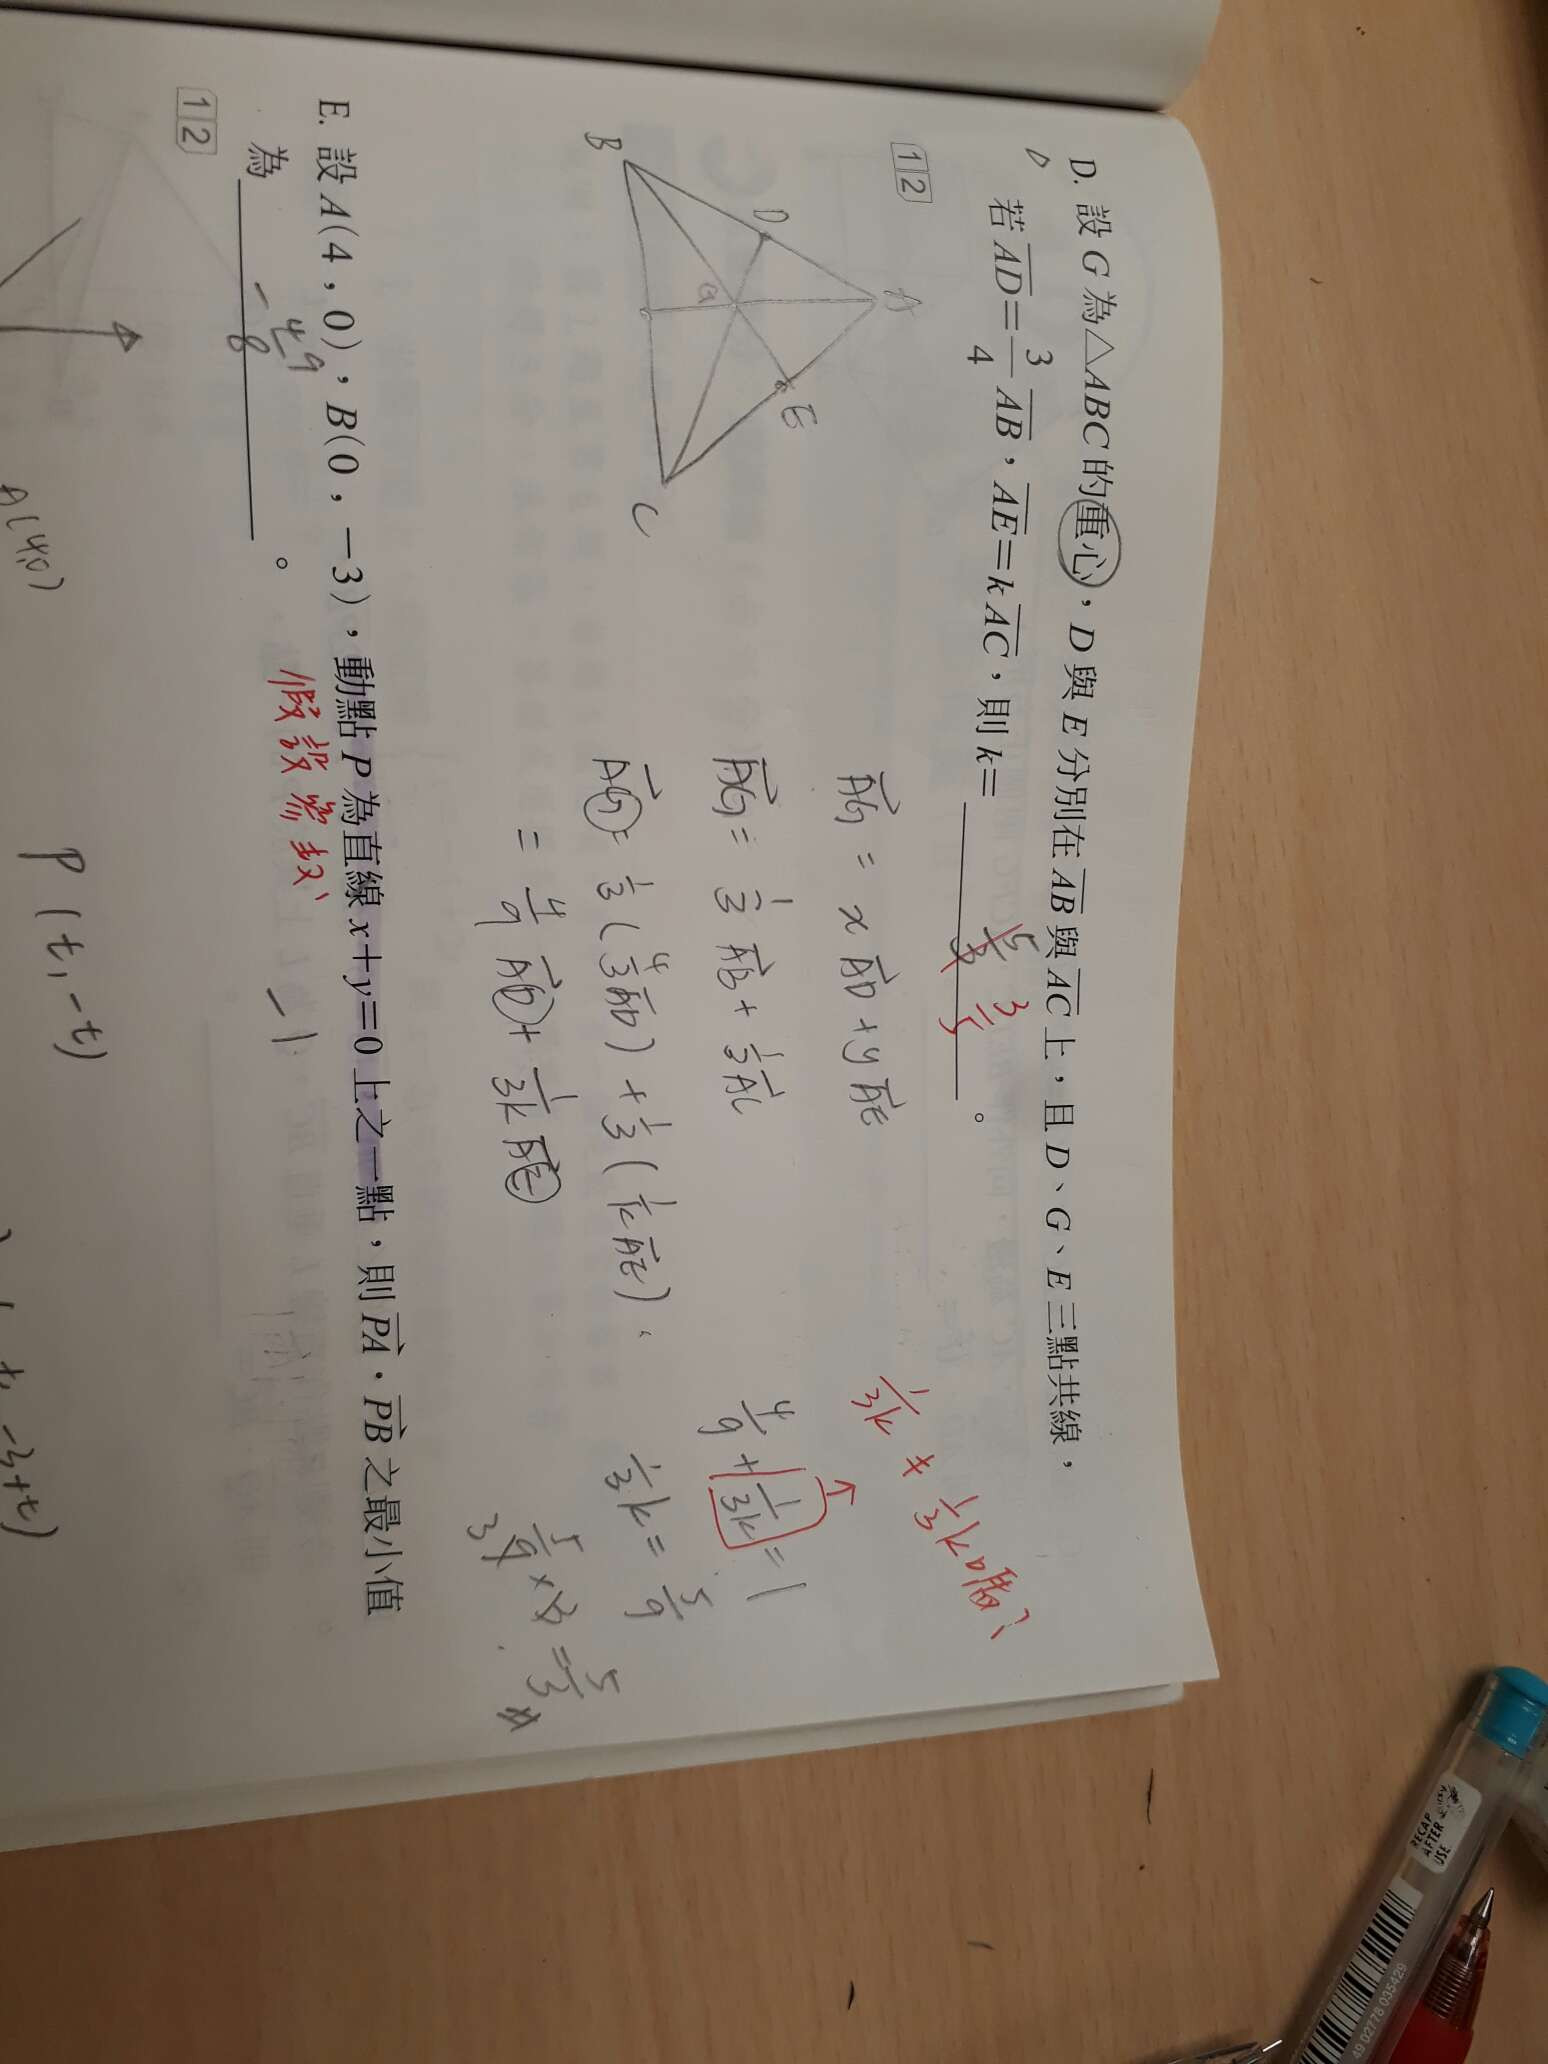 D. 設 G 為△ABC 的重心，D 與 E 分別在 AB 與 AC 上，且 D、G、E 三點共線，
若 AD=3/4 AB，AE=k AC，則 k= 5/3 3/5 。
1 2
A
D
E
G
B
C
AG = x AD + y AE
AG = 1/3 AB + 1/3 AC
AG = 1/3 (4/3 AD) + 1/3 (1/k AE)
= 4/9 AD + 1/3k AE
1/3k ≠ 1/3 k
4/9 + 1/3k = 1
1/3 k = 5/9
5/9 × 3 = 5/3
E. 設 A(4，0)，B(0，−3)，動點 P 為直線 x+y=0 上之一點，則 PA · PB 之最小值
為 −49/8 。
假設參數
−1
1 2
A(4,0)
P(t, −t)
−3+t)
RECAP
AFTER
USE
49 02778 035429